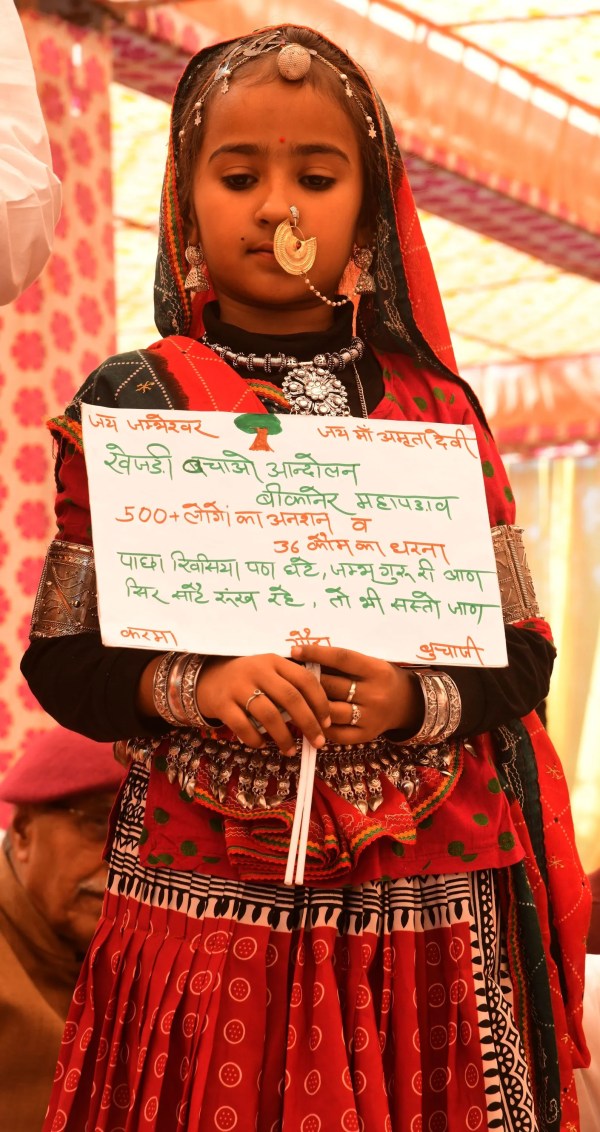 जय जम्भेश्वर जय माँ अमृता देवी
खेजड़ी बचाओ आन्दोलन
बीकानेर महापडाव
500+ लोगों का अनशन व
36 कौम का धरना
पाछा खिसिया पण घटे, जम्भ गुरु री आण
सिर साटै रूंख रहे, तो भी सस्तो जाण
करमा गौरा